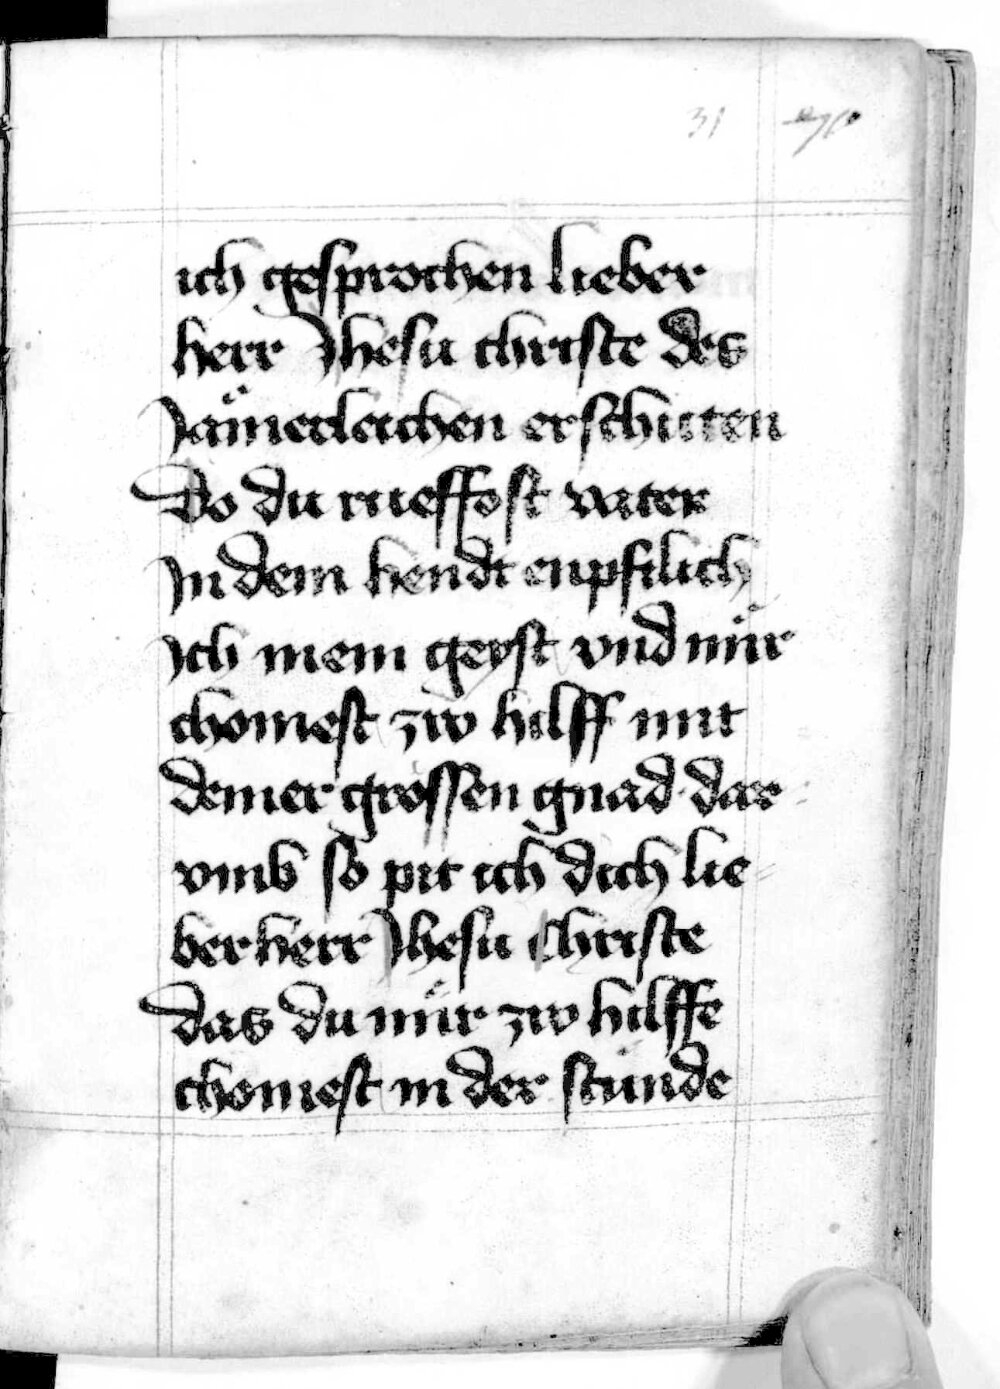 31
ich gesprochen lieber
herr Jhesu christe des
Jämerleichen erschutten
Do du rueffest vater
In dein hendt enpfilich
Ich mein geyst vnd mir
chomest zw hilff mit
deiner grossen gnad dar
vmb so pit ich dich lie
ber herr Jhesu Christe
das du mir zw hilffe
chomest in der stunde